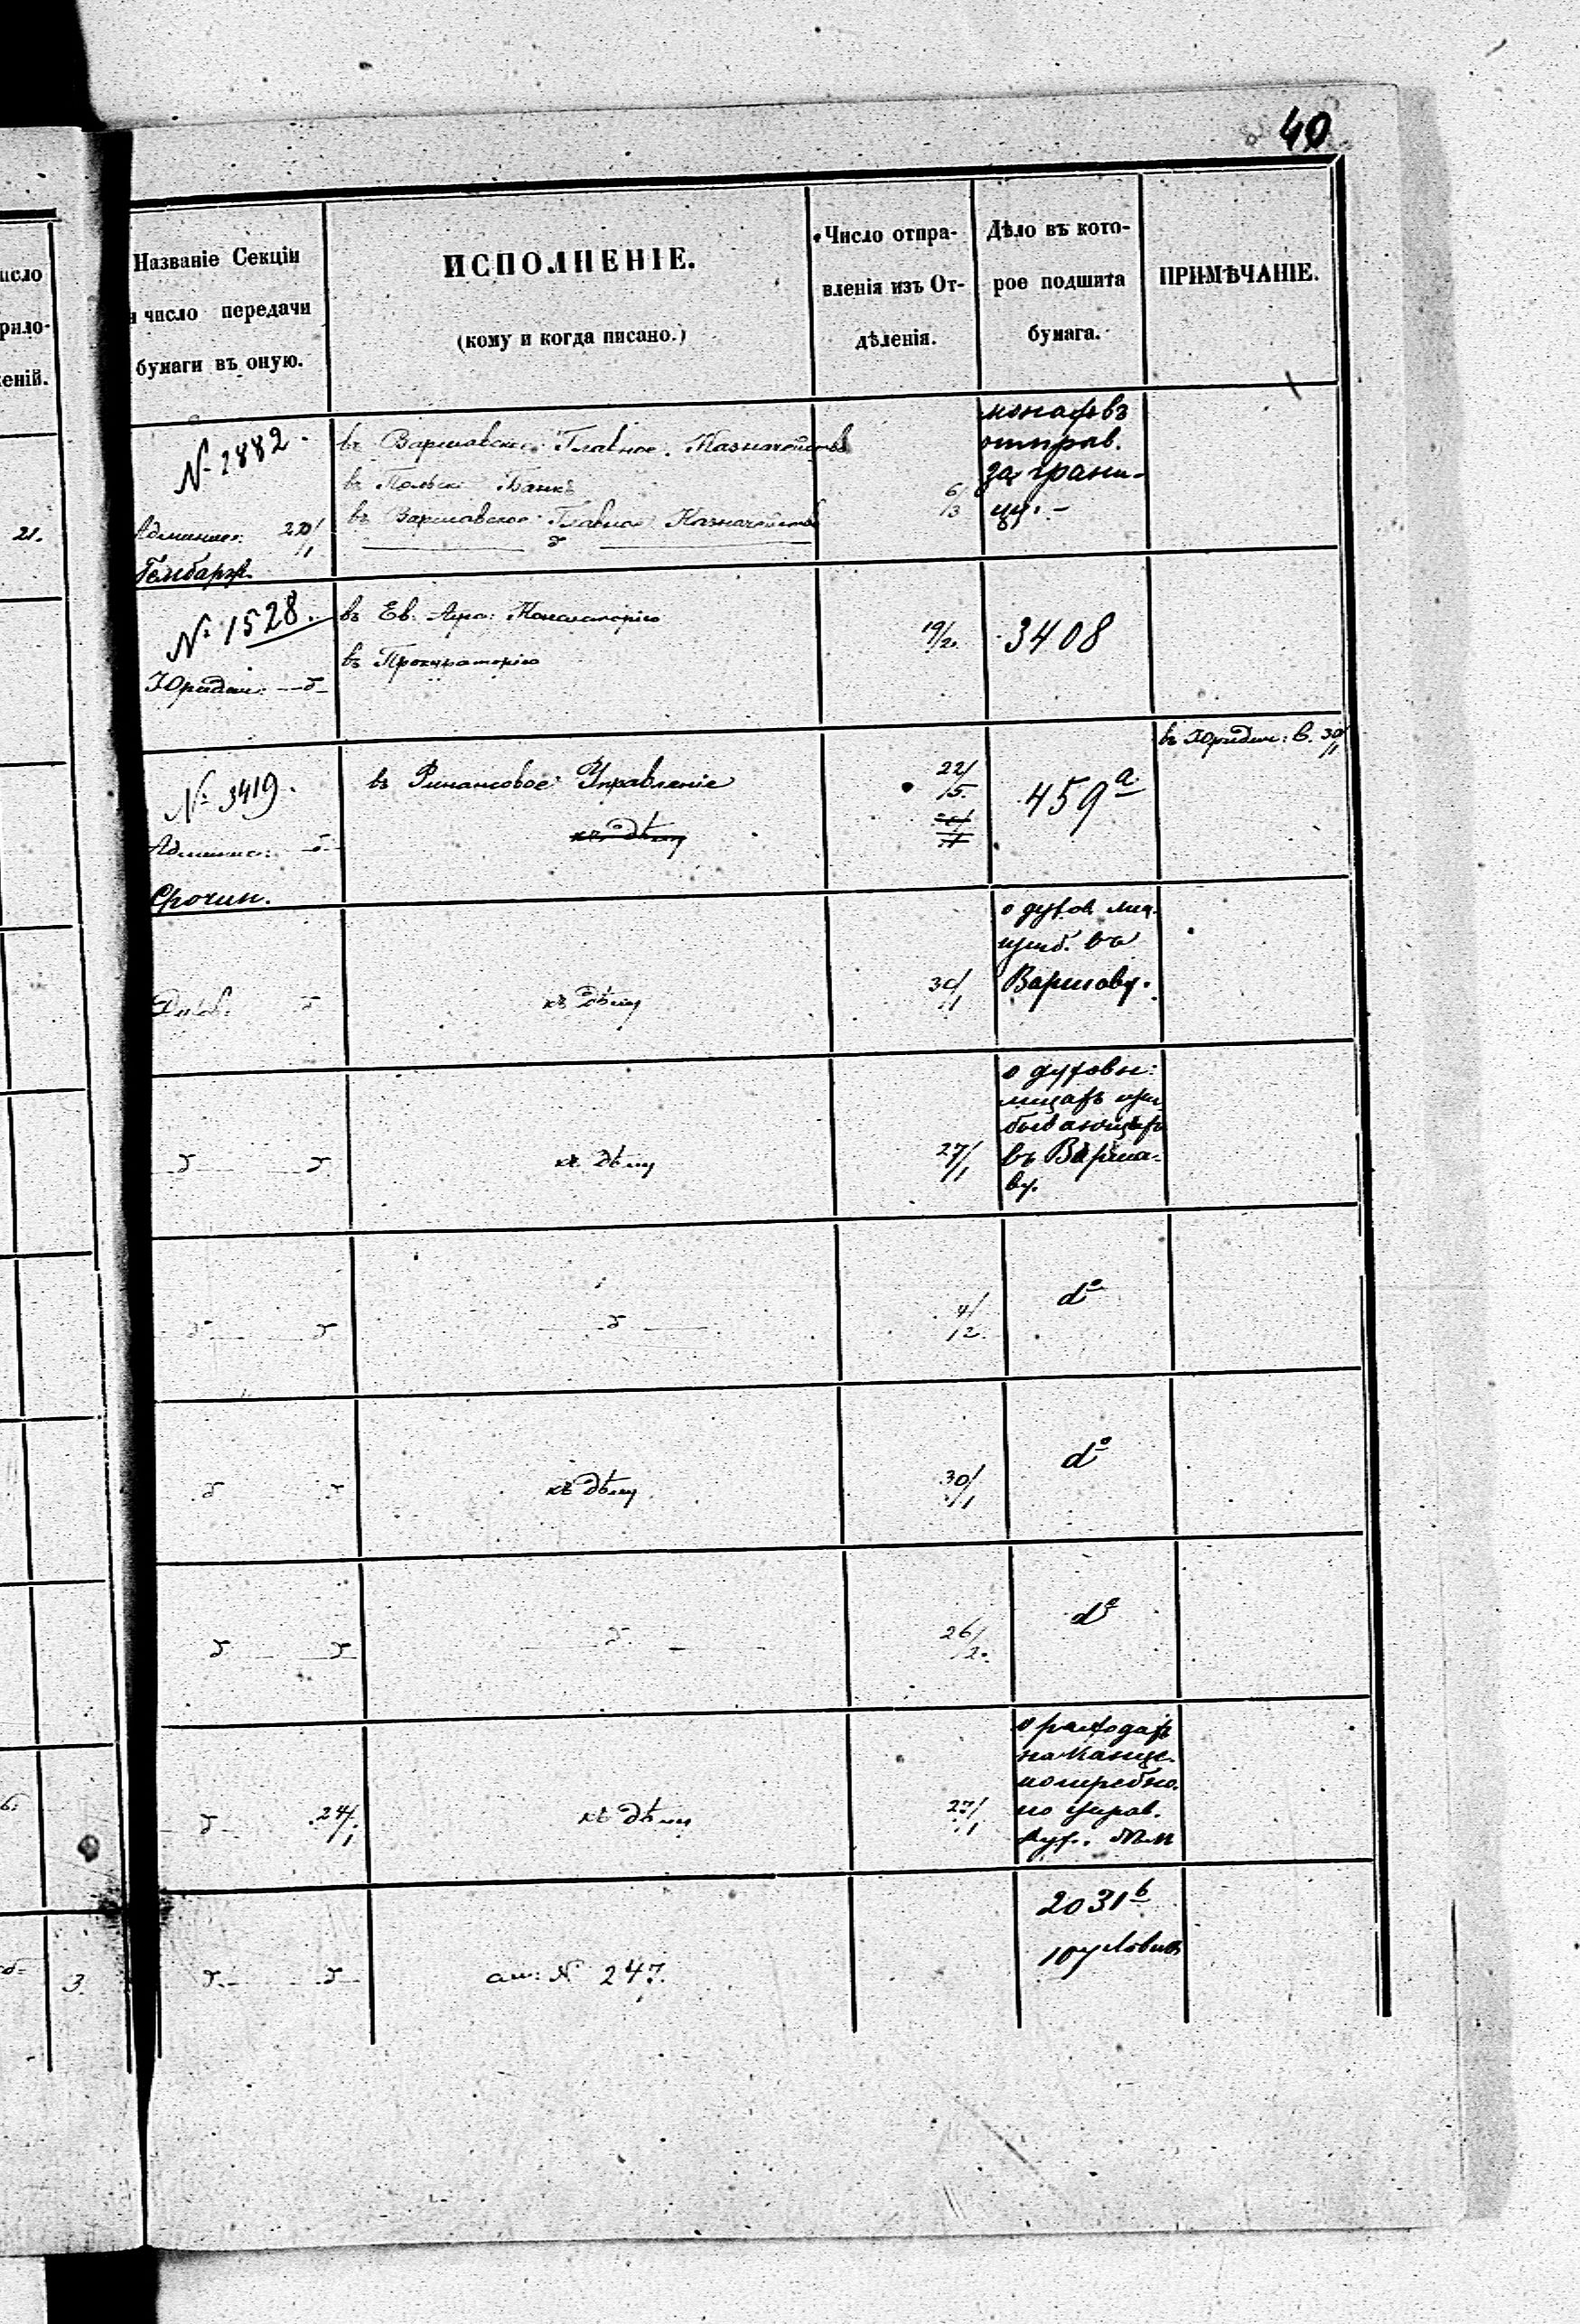 40
исло
рило-
еній.
21.
6.
3.
Названіе Секціи
и число передачи
бумаги въ оную.
ИСПОЛНЕНІЕ.
(кому и когда писано.)
Число отпра-
вленія изъ От-
дѣленія.
Дѣло въ кото-
рое подшита
бумага.
ПРИМѢЧАНІЕ.
№ 2882.
Админис: 20/1
въ Варшавское Главное Казначейство
въ Польскі Банкъ
въ Варшавское Главное Казначейство
6/3
монаховъ
отправ.
за грани-
цу. -
№ 1528.
Юридич:
въ Ев. Аугс: Консисторію
въ Прокураторію
19/2.
3408
№ 3419.
Админис:
Срочин.
въ Финансовое Управленіе
къ дѣлу
22/5.
459 a
въ Юридич: В. 30/1
къ дѣлу
30/1
о духов. лиц.
въ
Варшаву.
къ дѣлу
27/1
о духовн:
лицахъ при-
бывающихъ
въ Варша-
ву.
4/2.
d°
къ дѣлу
30/1
d°
26/2.
d°
24/1
къ дѣлу
27/1
о расходахъ
на Канце.
потребно.
по управ.
дух.
ст: № 247.
2031 b